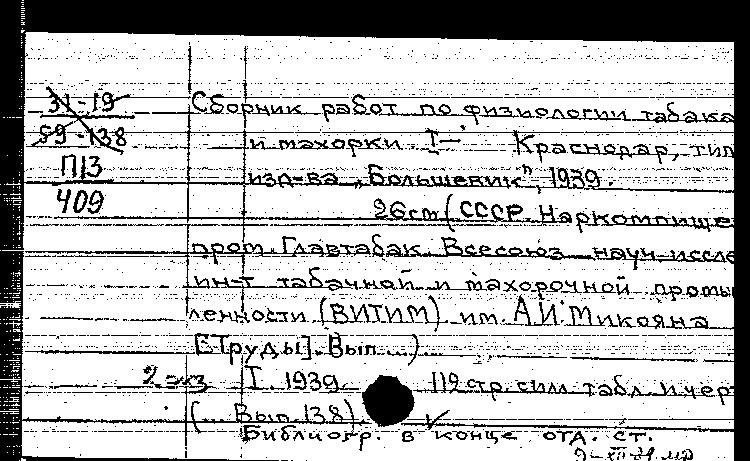 31-19
89-138
П13
409
Сборник работ по физиологии табака
и махорки I- Краснодар, тип
изд-ва „Большевик", 1939.
26см (СССР. Наркомпище
пром. Главтабак. Всесоюз науч-иссле
ин-т табачной и махорочной промы
ленности (ВИТИМ) им. А.И. Микояна
[Труды]. Вып...)
2 экз I. 1939 112 стр. с илл табл и черт
(... Вып 138)
Библиогр. в конце отд. ст.